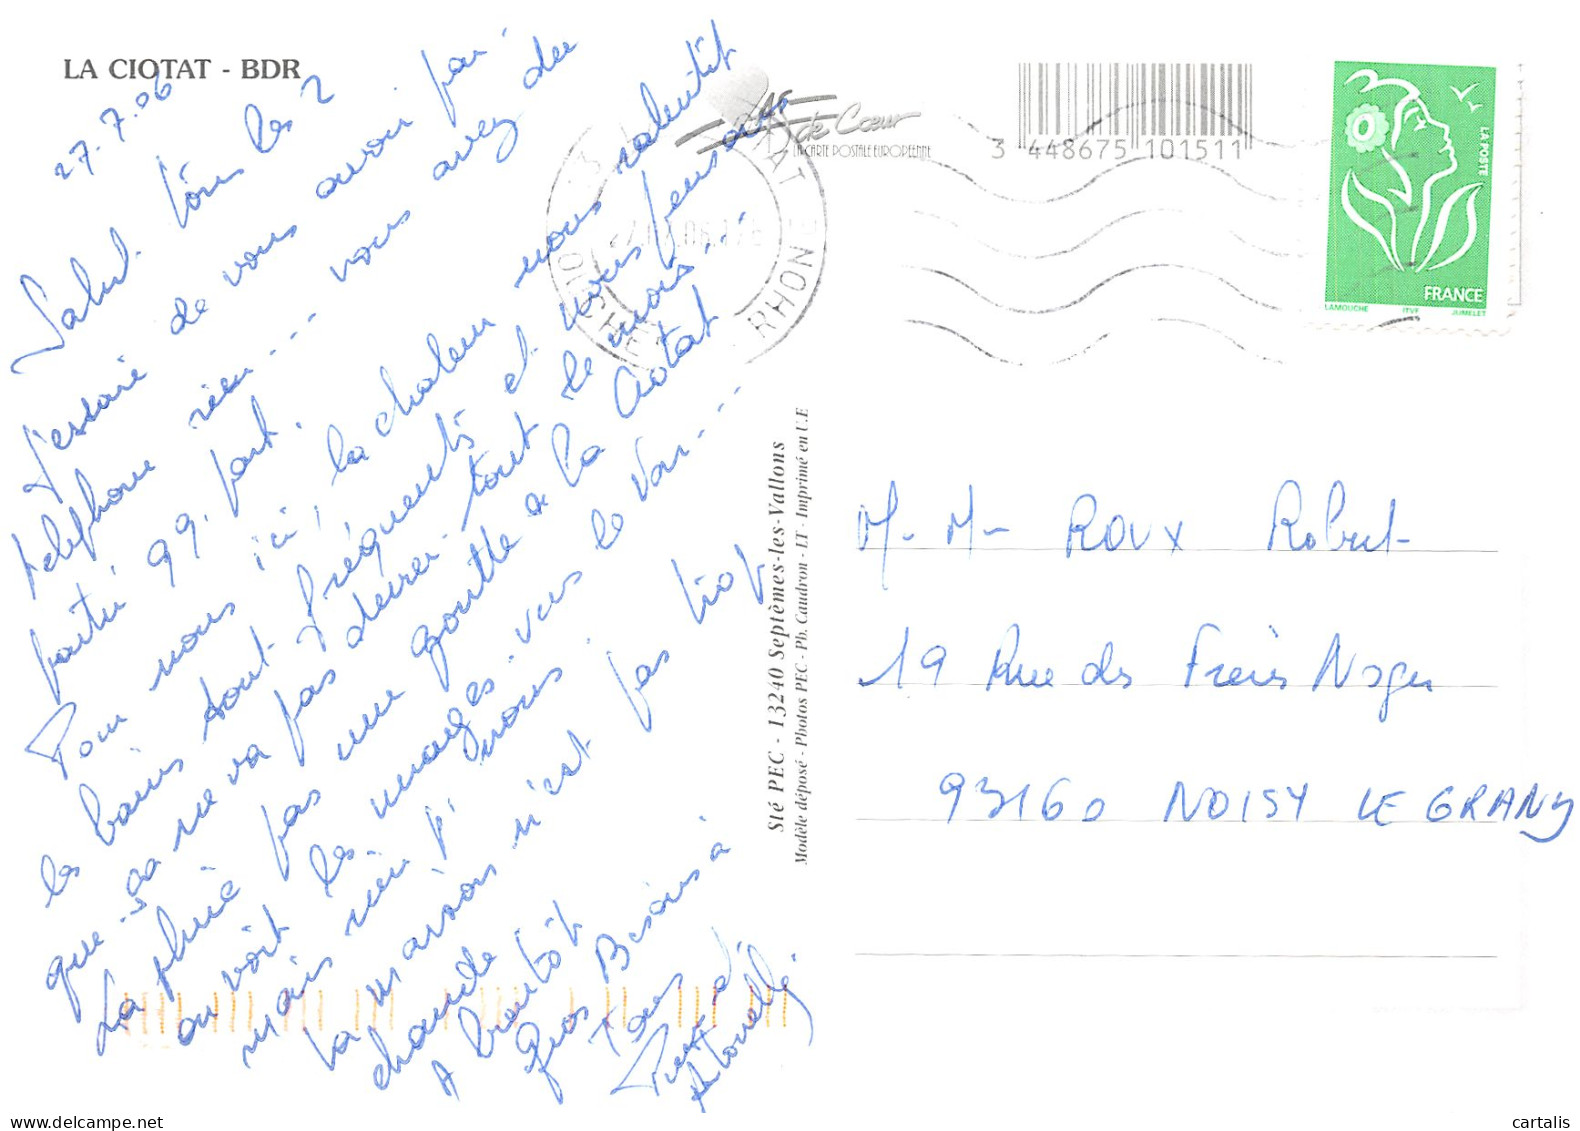 LA CIOTAT - BDR
27.7.06
Salut tous les 2
J'essaie de vous avoir par
telephone rien... vous avez du
partir qq. part.
Pour nous ici, la chaleur nous ralentit
les bains sont fréquents et nous pensons
que ça ne va pas durer tout le mois...
La pluie pas une goutte à la Ciotat
on voit les nuages vers le Var...
mais rien pr nous.
La maison n'est pas trop
chaude
A bientôt
Gros Bisous à
Tous
et
As de Cœur
LA CARTE POSTALE EUROPEENNE
3 448675 101511
RHONE
LA POSTE
FRANCE
LAMOUCHE ITVF JUMELET
Sté PEC - 13240 Septèmes-les-Vallons
Modèle déposé - Photos PEC - Ph. Caudron - IT - Imprimé en U.E
M. Mr ROUX Robert
19 Rue des Frères Noger
93160 NOISY LE GRAND
delcampe.net
cartalis